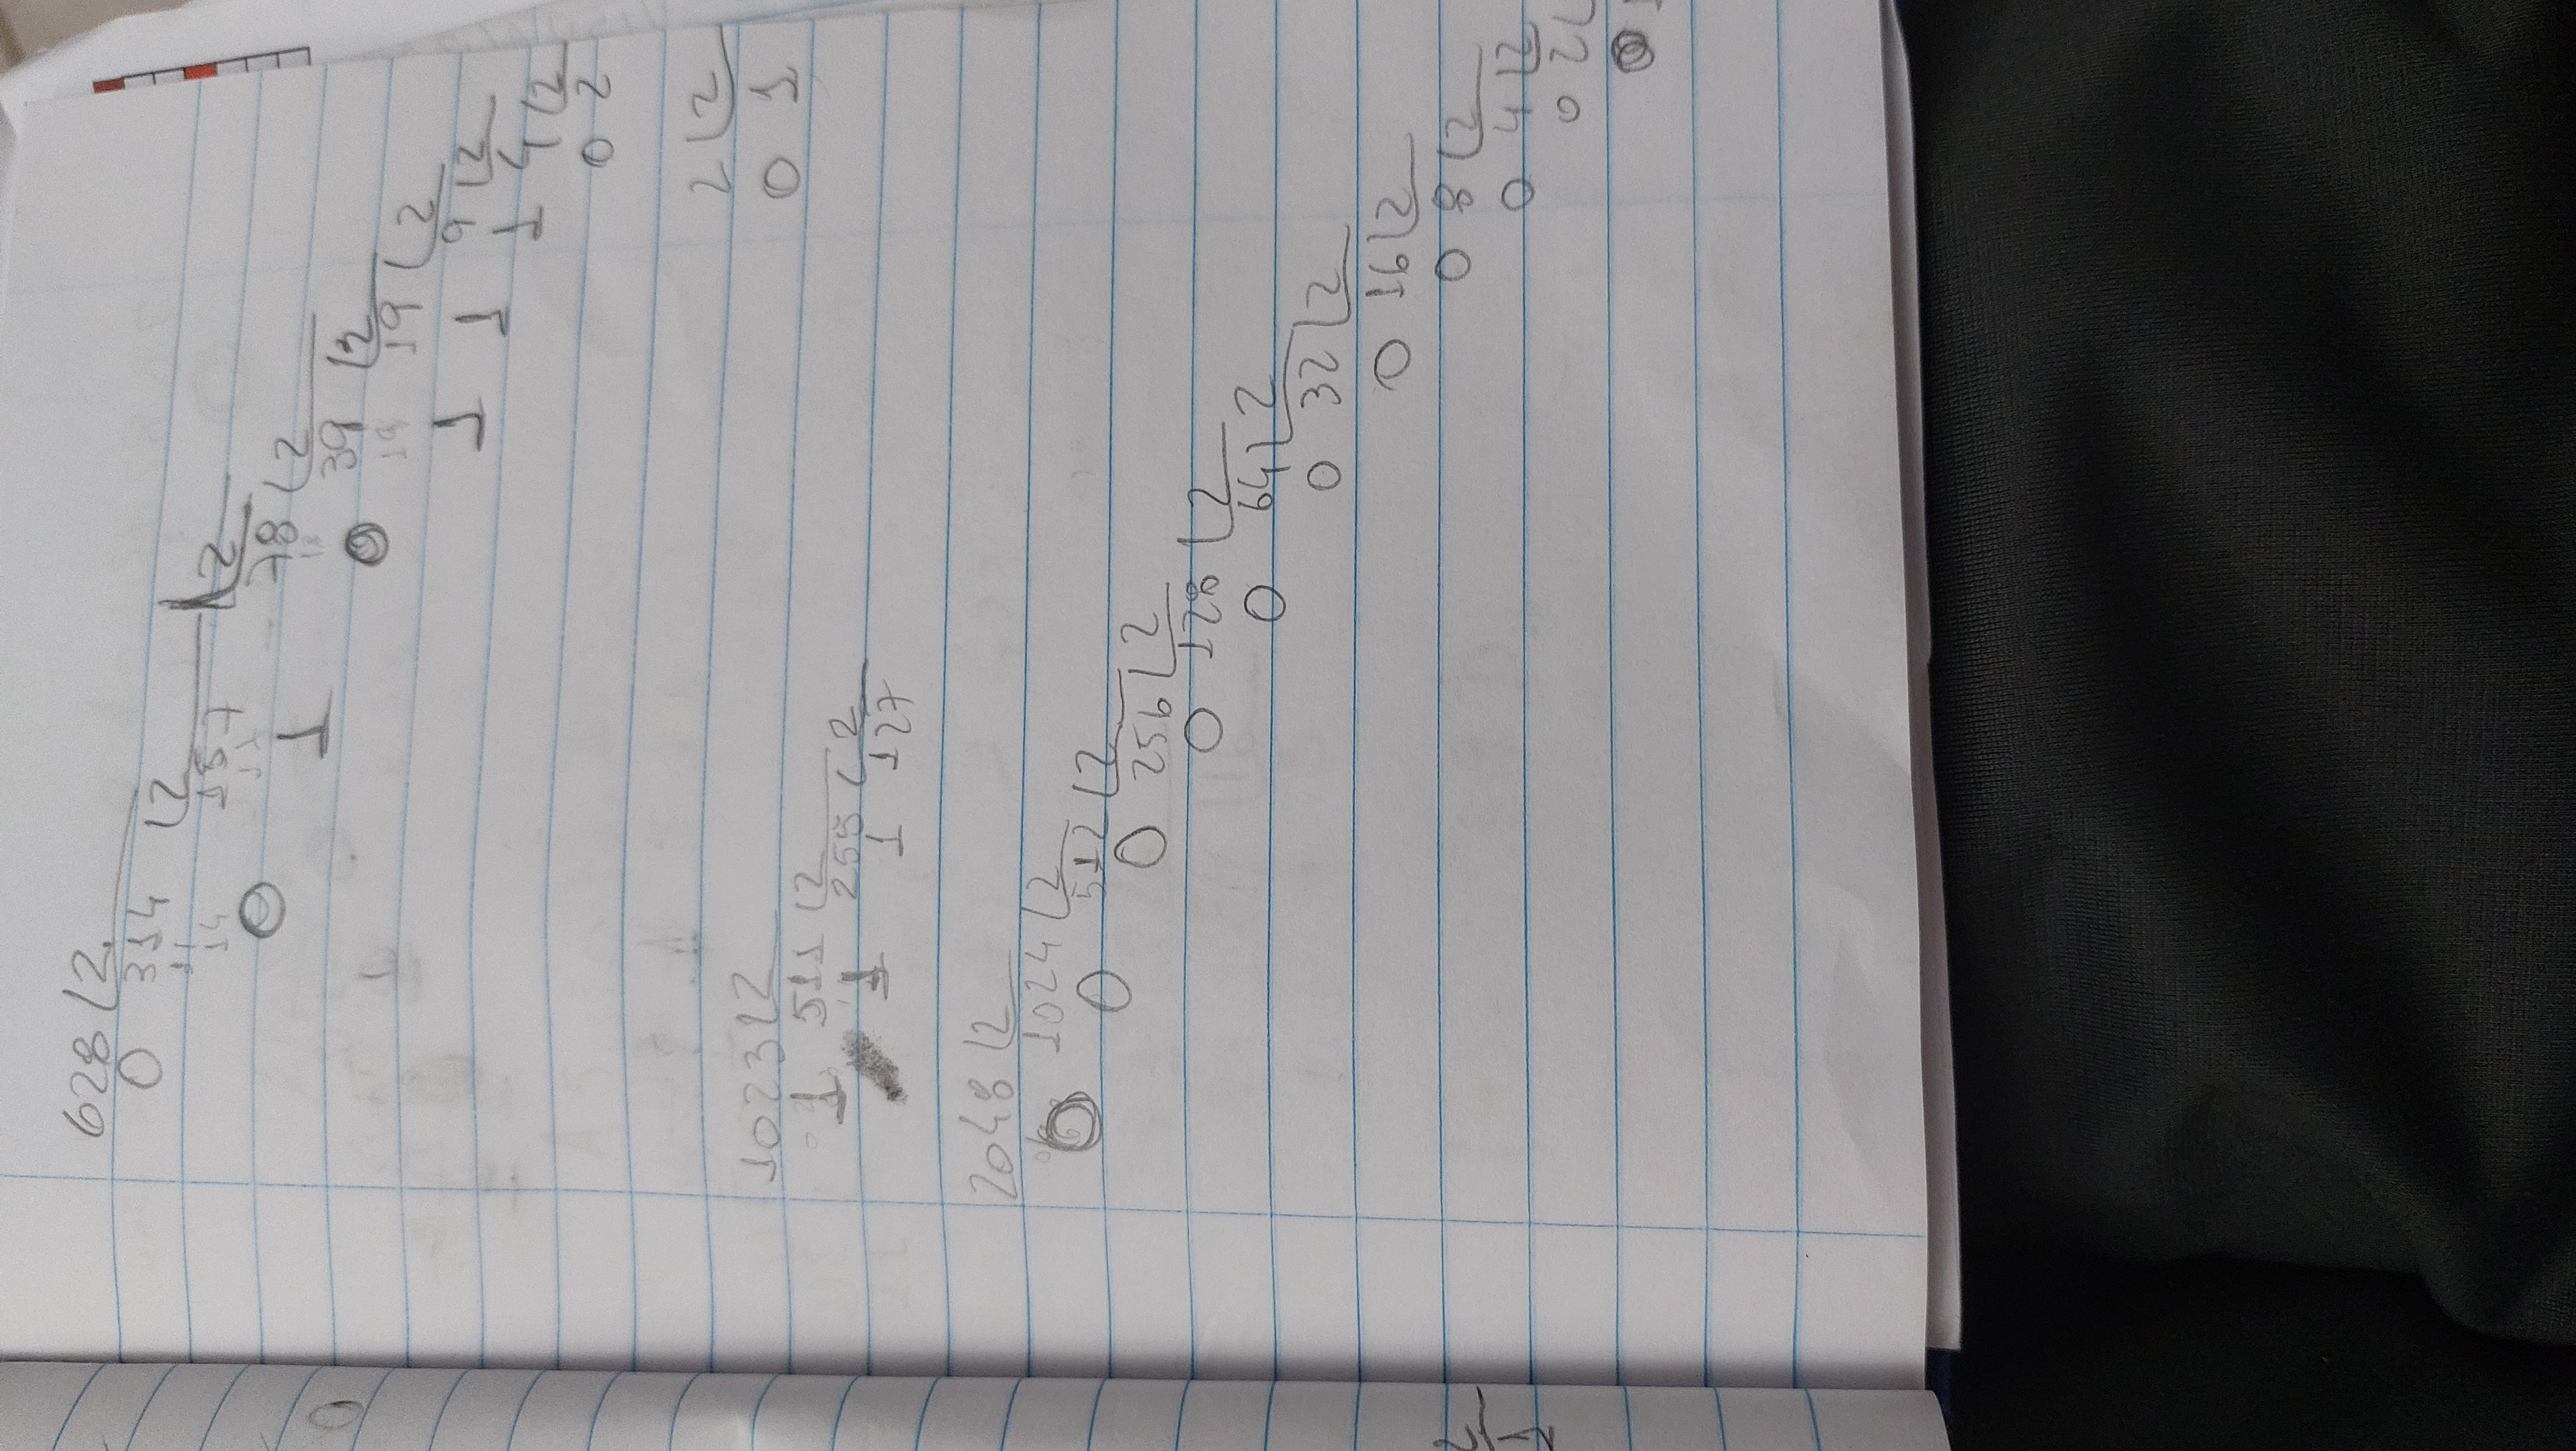 628 2
0 314 2
11 157 2
14 17 78 2
0 1 18 39 2
0 19 19 2
1 1 9 2
1 4 2
0 2
2 2
0 1
1023 2
1 511 2
1 255 2
1 127
2048 2
0 1024 2
0 512 2
0 256 2
0 128 2
0 64 2
0 32 2
0 16 2
0 8 2
0 4 2
0 2
0 1
0
2
1